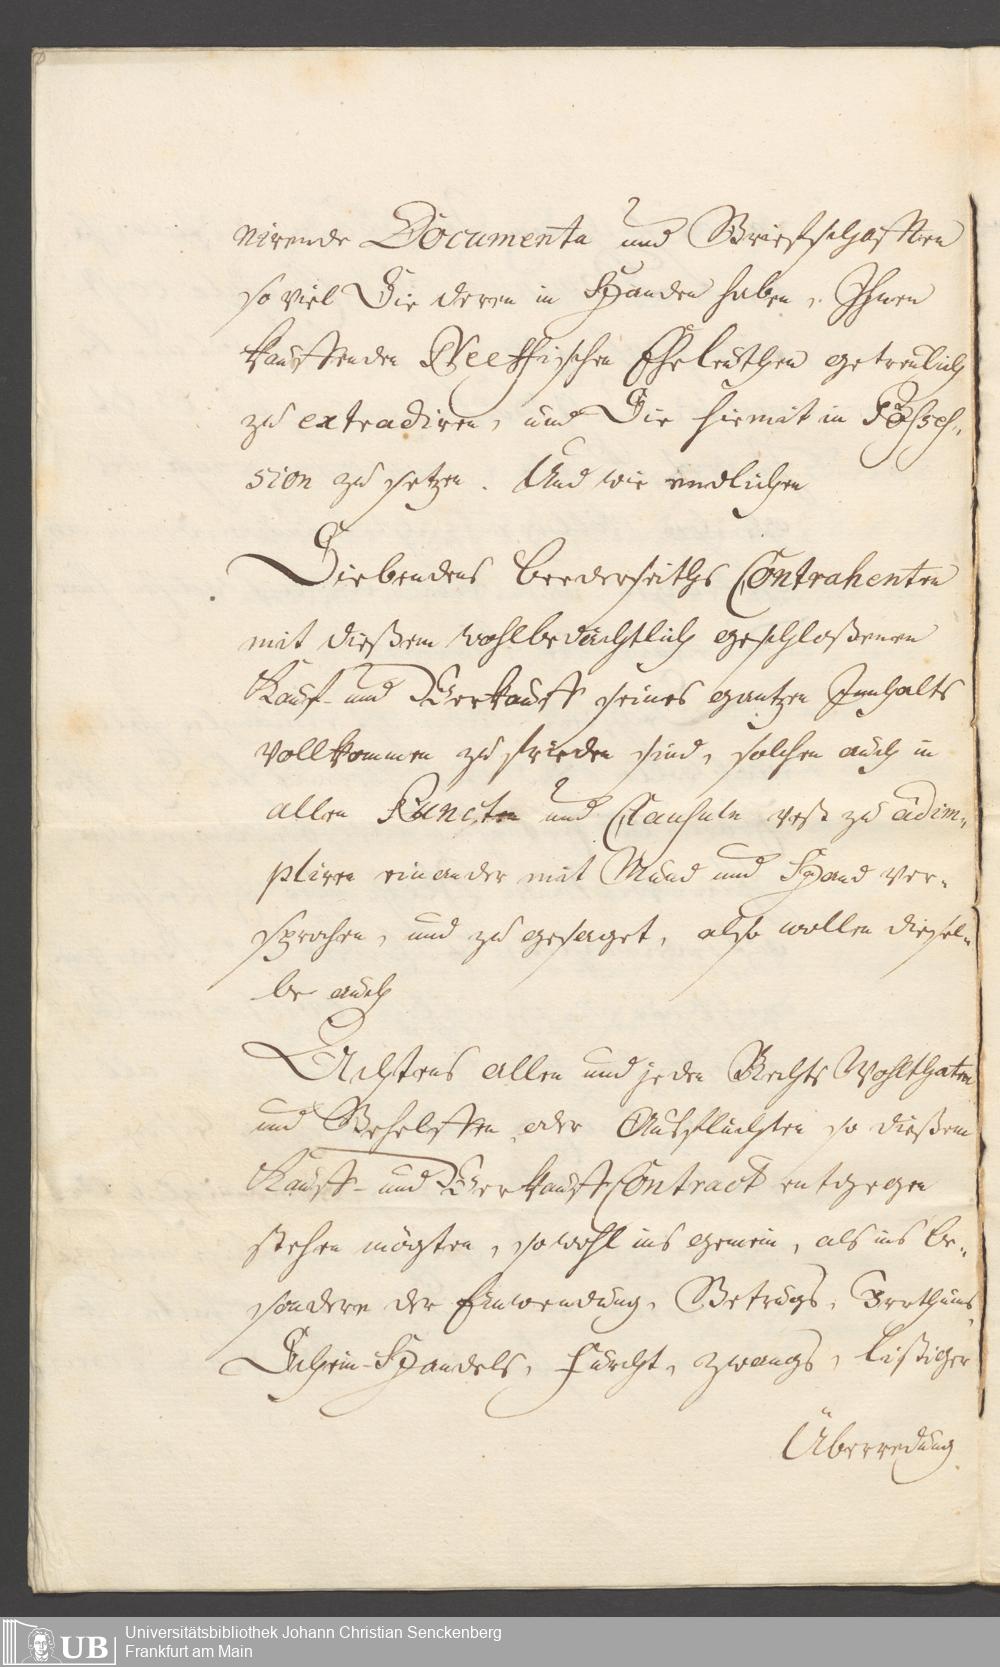 nirende Documenta und Briefschafften
so viel Sie deren in Handen haben, Ihnen
kauffenden Eheleuthen getreulich
zu extradiren, und Sie hiemit in Possess-
sion zu setzen. Und wie endlichen
Siebendens beederseiths Contrahenten
mit dießem wohlbedächtlich geschloßenen
Kauf- und Verkauff seines gantzen Innhalts
vollkommen zufrieden sind, solchen auch in
allen Puncten und Clausuln vest zu adim-
pliren einander mit Mund und Hand ver-
sprochen, und zu gesaget, also wollen diesel-
be auch
Achtens allen und jeden Rechts Wohlthaten
und Behelffen oder Ausflüchten so dießem
Kauff- und Verkauff Contract entgegen
stehen mögten, sowohl ins gemein, als ins be-
sondere der Einwendung, Betrugs, Irrthums,
Schein-Handels, Furcht, Zwangs, listiger
Überredung
UB Universitätsbibliothek Johann Christian Senckenberg
Frankfurt am Main